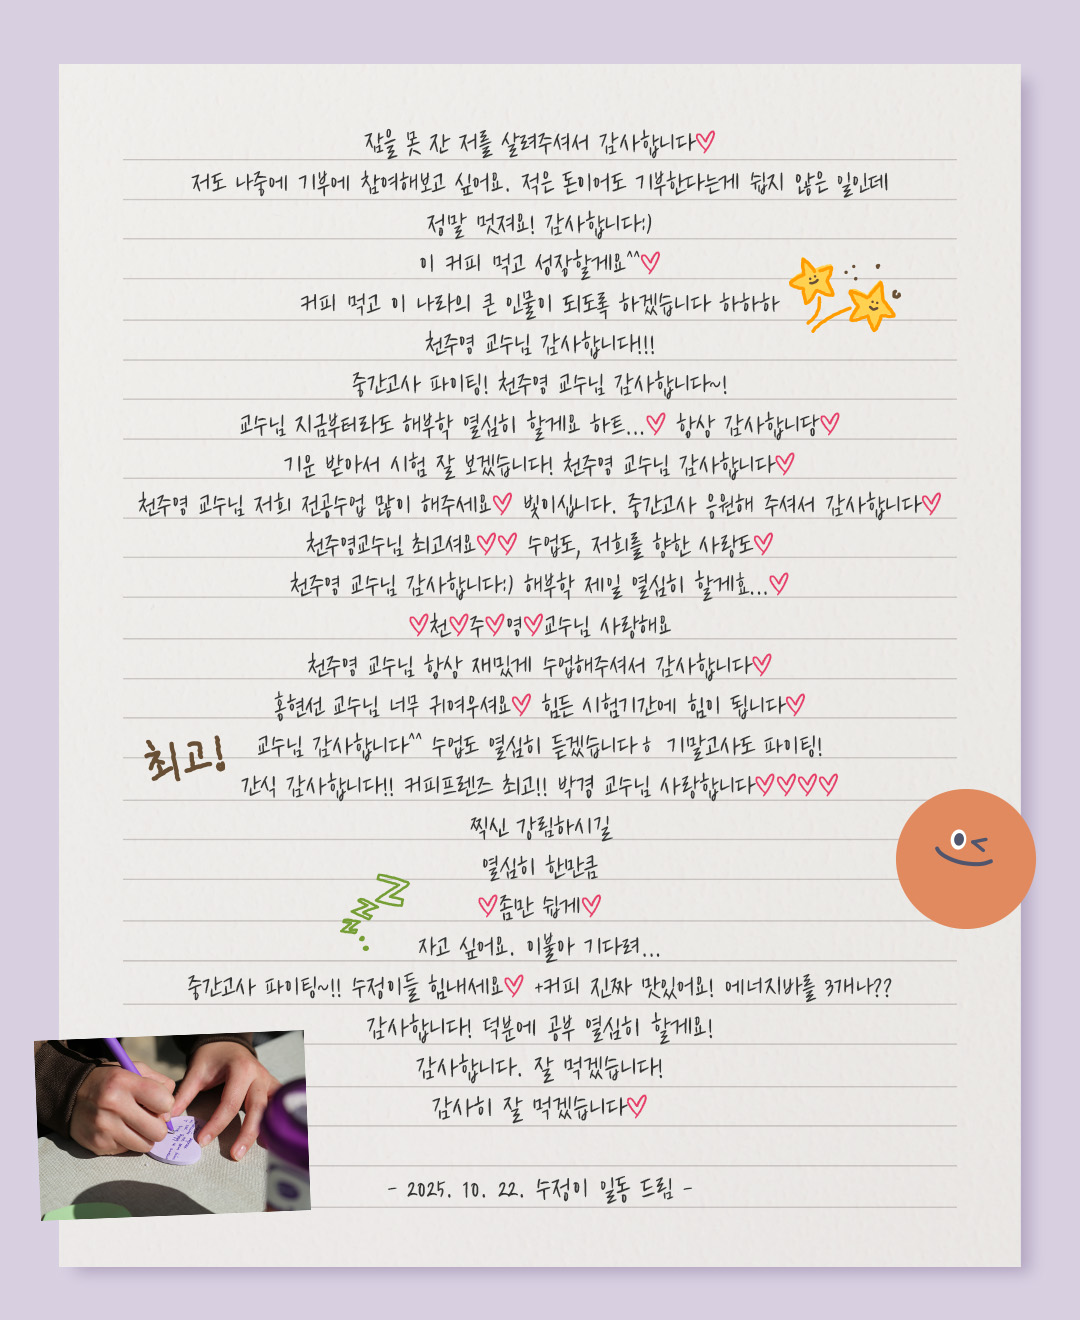 잠을 못 잔 저를 살려주셔서 감사합니다♡
저도 나중에 기부에 참여해보고 싶어요. 적은 돈이어도 기부한다는게 쉽지 않은 일인데
정말 멋져요! 감사합니다:)
이 커피 먹고 성장할게요^^♡
커피 먹고 이 나라의 큰 인물이 되도록 하겠습니다 하하하
천주영 교수님 감사합니다!!!
중간고사 파이팅! 천주영 교수님 감사합니다~!
교수님 지금부터라도 해부학 열심히 할게요 하트...♡ 항상 감사합니당♡
기운 받아서 시험 잘 보겠습니다! 천주영 교수님 감사합니다♡
천주영 교수님 저희 전공수업 많이 해주세요♡ 빛이십니다. 중간고사 응원해 주셔서 감사합니다♡
천주영교수님 최고셔요♡♡ 수업도, 저희를 향한 사랑도♡
천주영 교수님 감사합니다:) 해부학 제일 열심히 할게효...♡
♡천♡주♡영♡교수님 사랑해요
천주영 교수님 항상 재밌게 수업해주셔서 감사합니다♡
홍현선 교수님 너무 귀여우셔요♡ 힘든 시험기간에 힘이 됩니다♡
최고!
교수님 감사합니다^^ 수업도 열심히 듣겠습니다ㅎ 기말고사도 파이팅!
간식 감사합니다!! 커피프렌즈 최고!! 박경 교수님 사랑합니다♡♡♡♡
찍신 강림하시길
열심히 한만큼
♡좀만 쉽게♡
zzZ
자고 싶어요. 이불아 기다려...
중간고사 파이팅~!! 수정이들 힘내세요♡ +커피 진짜 맛있어요! 에너지바를 3개나??
감사합니다! 덕분에 공부 열심히 할게요!
감사합니다. 잘 먹겠습니다!
감사히 잘 먹겠습니다♡
- 2025. 10. 22. 수정이 일동 드림 -